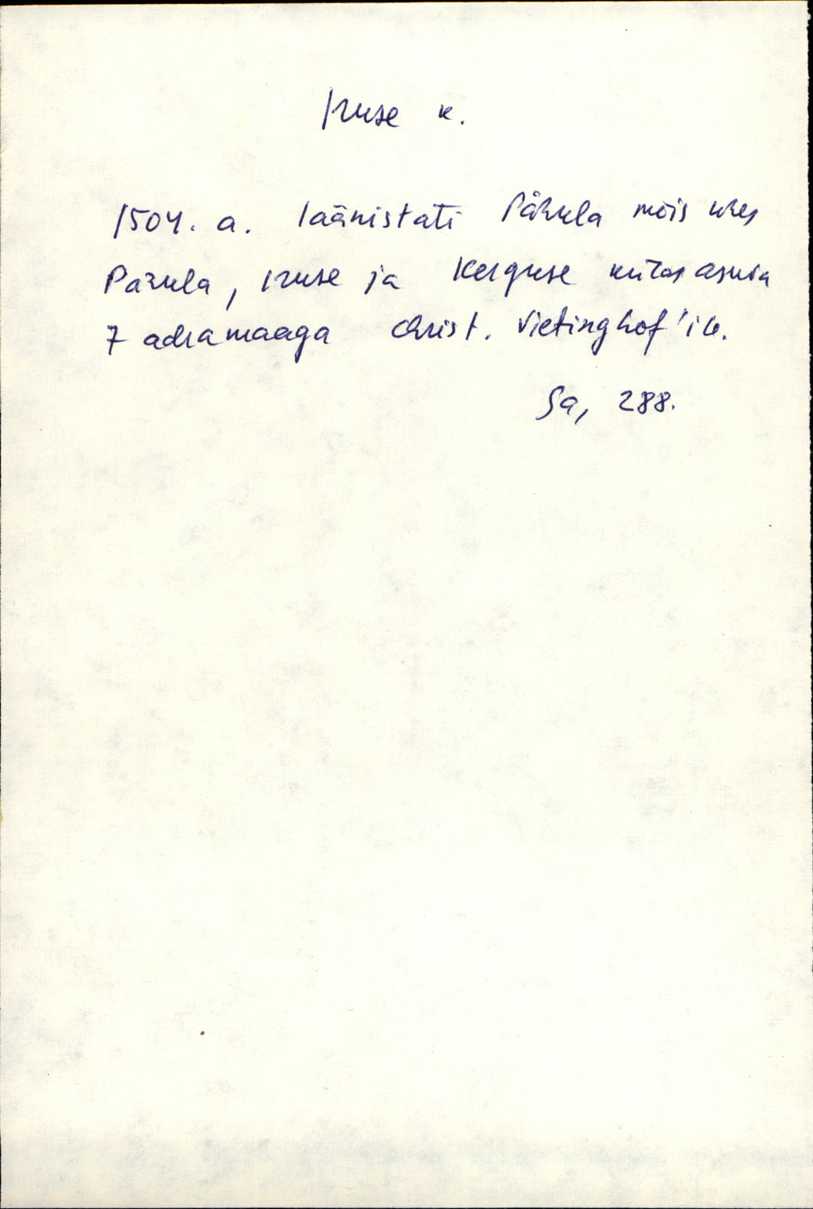 Iruse k.
1504. a. läänistati Pärula mõis ühes
Parula, Iruse ja Kerguse külas asuva
7 adramaaga Christ. Vietinghof'ile.
Sa, 288.